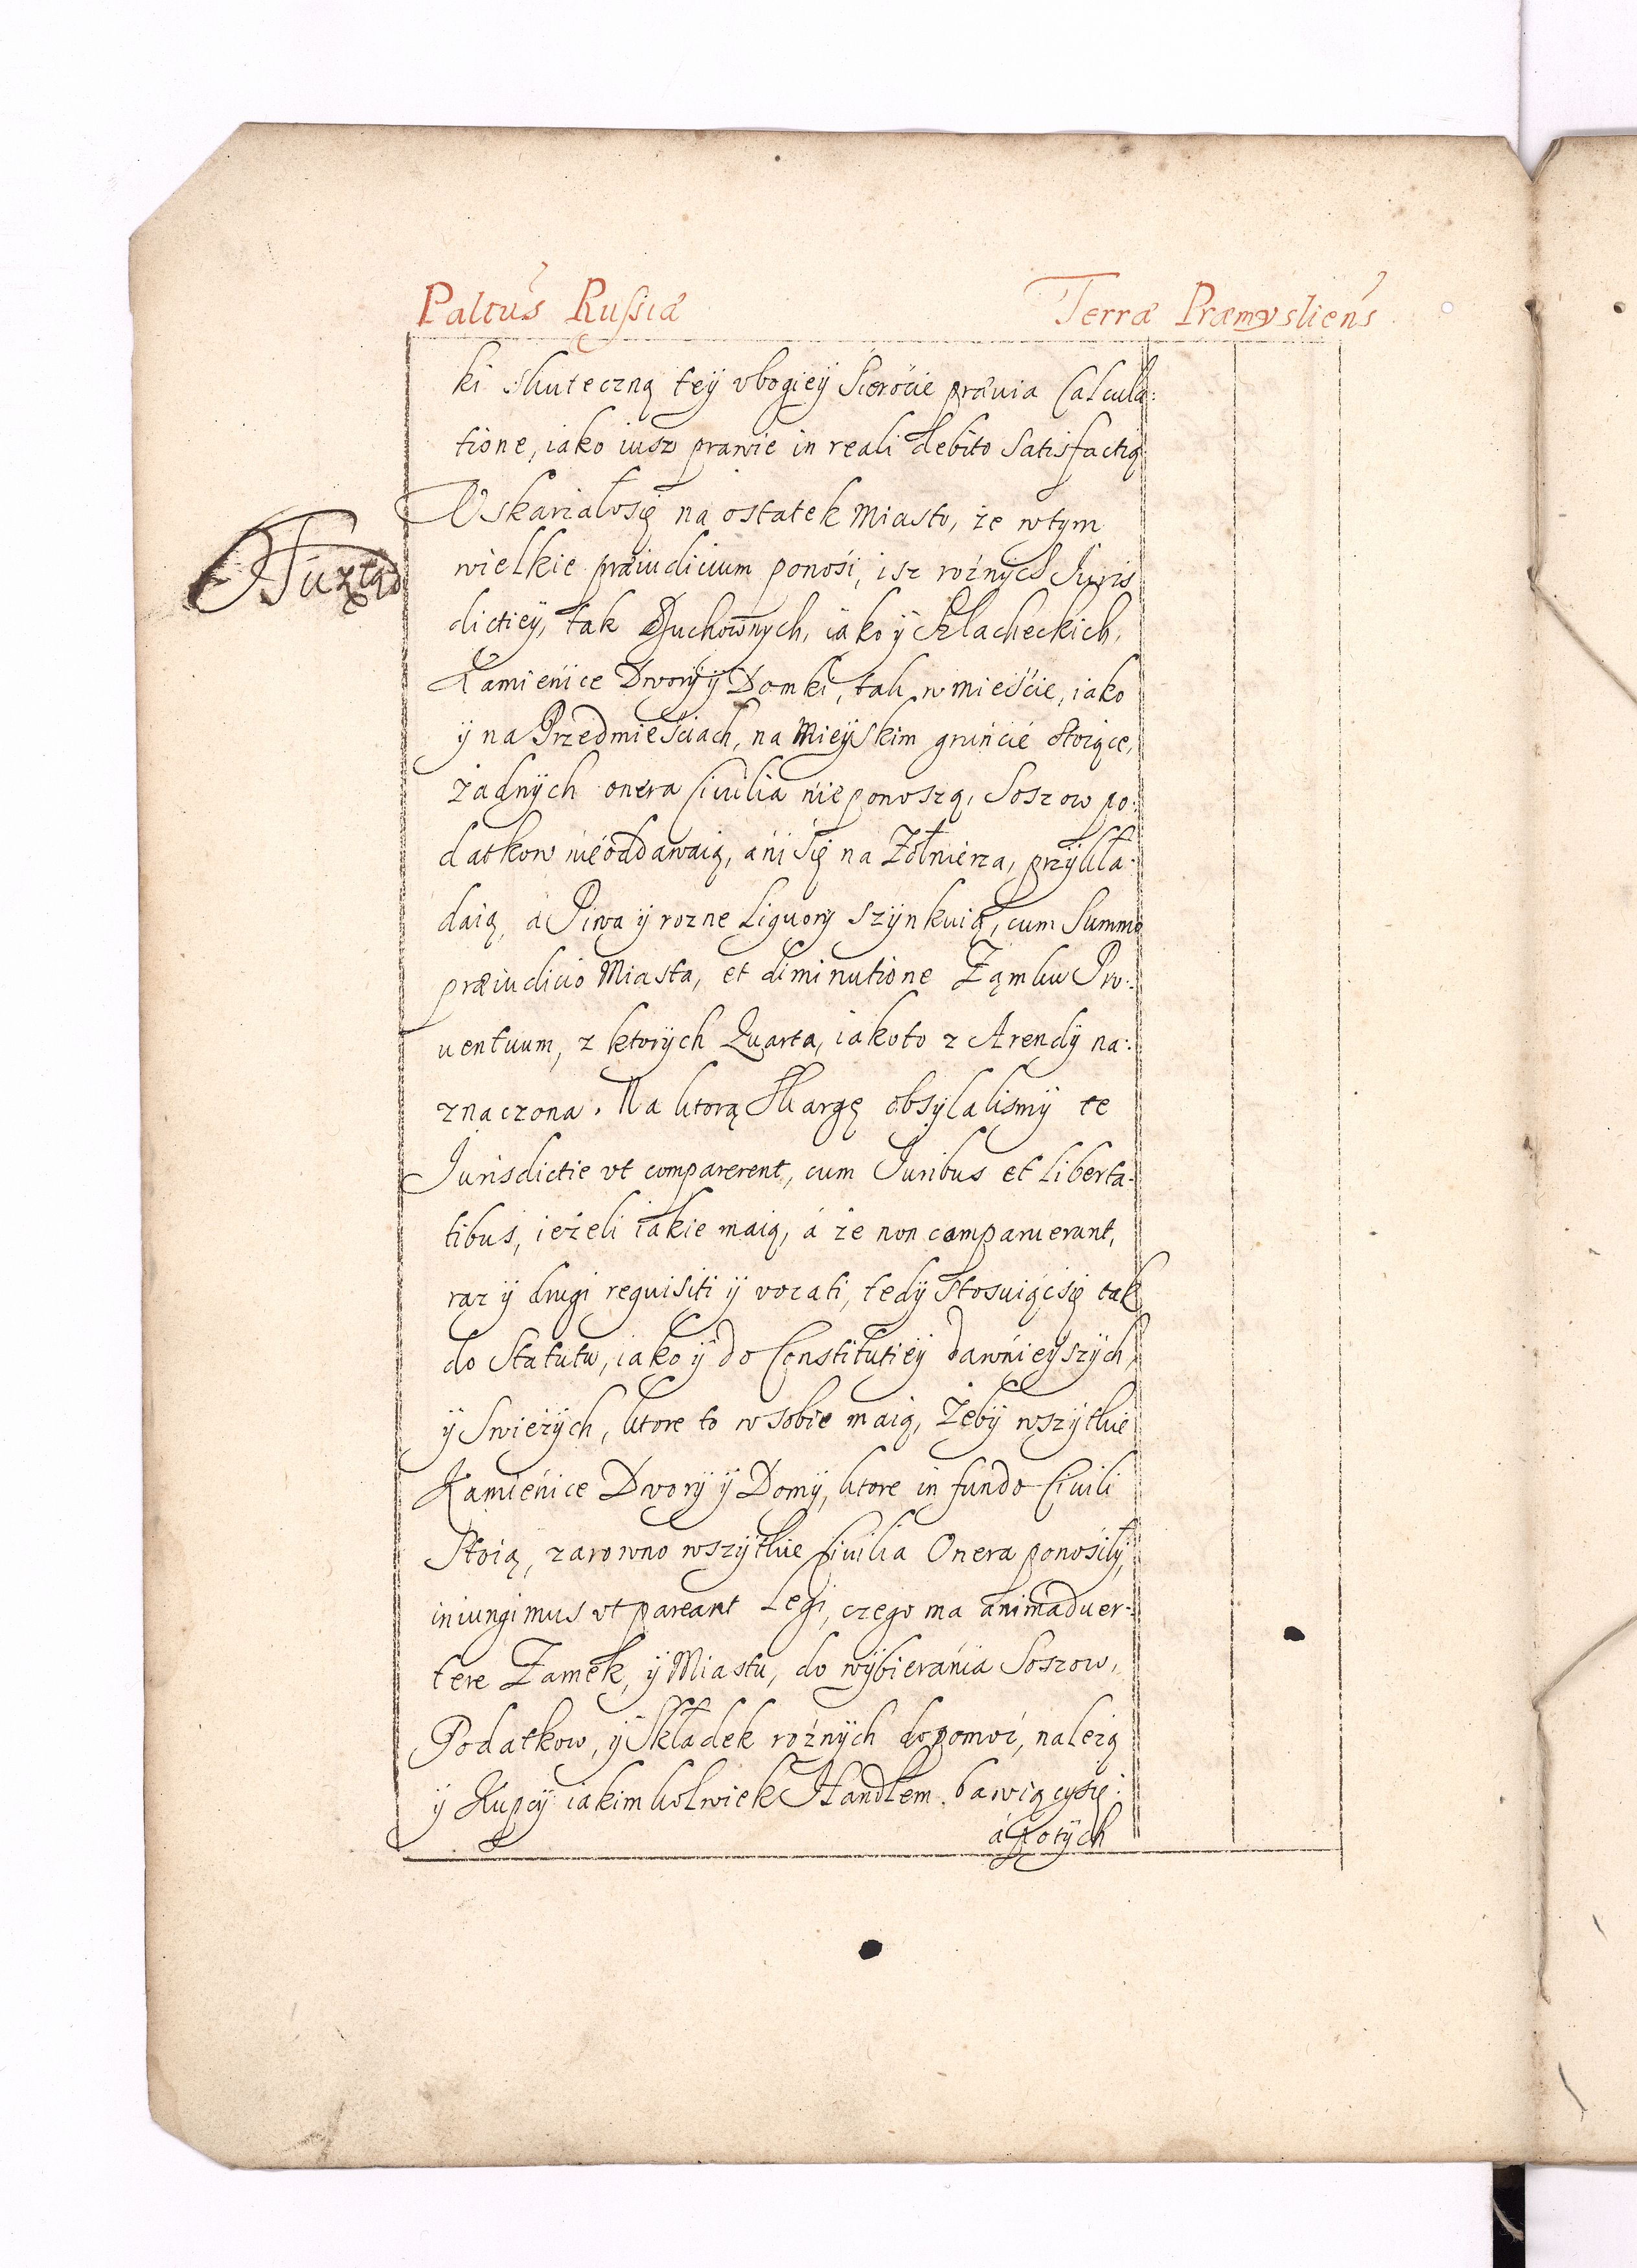 Paltus Russiæ Terræ Præmysliens
ki skuteczną teÿ vbogieÿ Sierocie prævia Calcula:
tione, iako iusz prawie in reali debito Satisfactią
Vskarzałosię na ostatek Miasto, że wtym
wielkie præiudicium ponosi, isz rożnÿch Iuris
dictieÿ, tak Duchownych, iako ÿ Szlacheckich,
Kamienice Dworÿ ÿ Domki, tak w mieście, iako
ÿ na Przedmieściach, na Mieÿskim gruńcie stoiące,
żadnÿch onera Ciuilia nie ponoszą, Soszow po:
datkow nieoddawaią, ani się na Żołnierza, przÿkła:
daią, á Piwa ÿ rozne Liquorÿ szÿnkuią, cum Summo
præiudicio Miasta, et diminutione Zamku Pro:
uentuum, z ktorÿch Quarta, iakoto z Arendÿ na:
znaczona. Na ktorą Skargę obsÿlalismÿ te
Jurisdictie vt comparerent, cum Juribus et Liberta:
tibus, ieżeli iakie maią, á że non comparuerunt,
raz ÿ drugi requisiti ÿ vocati, tedÿ stosuiącsię tak
do Statutu, iako ÿ do Constitutieÿ dawnieÿszÿch,
ÿ Swieżÿch, ktore to w sobie maią, Żebÿ wszÿtkie
Kamienice Dworÿ ÿ Domÿ, ktore in fundo Ciuili
Stoią, zarowno wszÿtkie Ciuilia Onera ponosiłÿ,
iniungimus vt pareant Legi, czego ma animaduer:
tere Zamek, ÿ Miastu, do wÿbierania Soszow,
Podatkow, ÿ Składek rożnÿch dopomoż, należą
ÿ Kupcÿ iakimkolwiek Handlem bawiącysię:
á potÿch